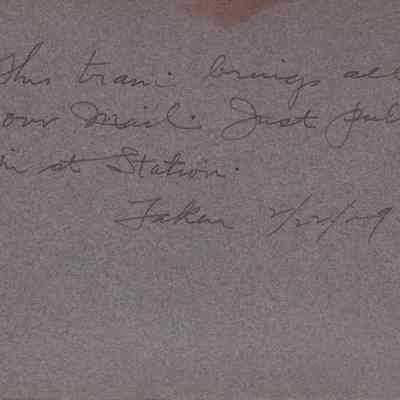 This train brings all
our Mail. Just pul
in at Station.
Taken 2/22/29